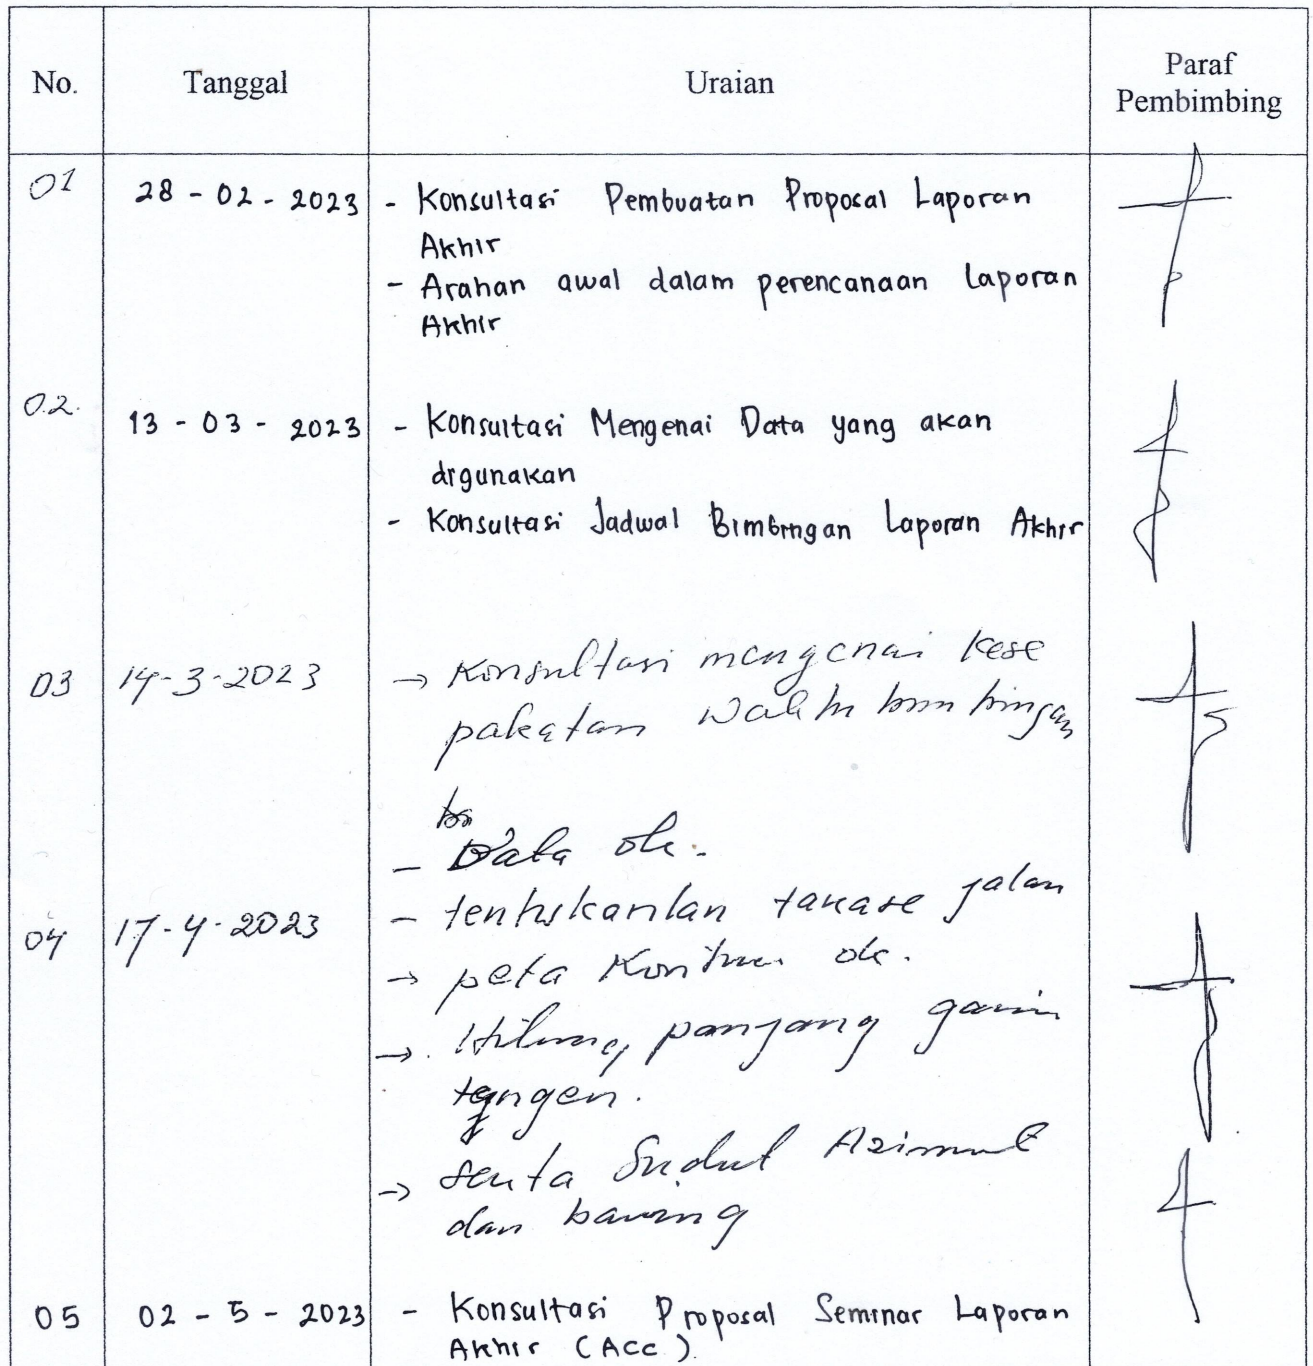 No. Tanggal Uraian Paraf Pembimbing
01 28 - 02 - 2023 - Konsultasi Pembuatan Proposal Laporan
Akhir
- Arahan awal dalam perencanaan Laporan
Akhir
02. 13 - 03 - 2023 - Konsultasi Mengenai Data yang akan
digunakan
- Konsultasi Jadwal Bimbingan Laporan Akhir
03 14-3-2023 → Konsultasi mengenai kese
pakatan waktu bimbingan
- Data ok.
- tentukanlan jalan
04 17-4-2023 → peta Kontur ok.
→. Hitung panjang garis
tangen.
→ serta Sudut Azimut
dan baring
05 02 - 5 - 2023 - Konsultasi Proposal Seminar Laporan
Akhir (Acc)